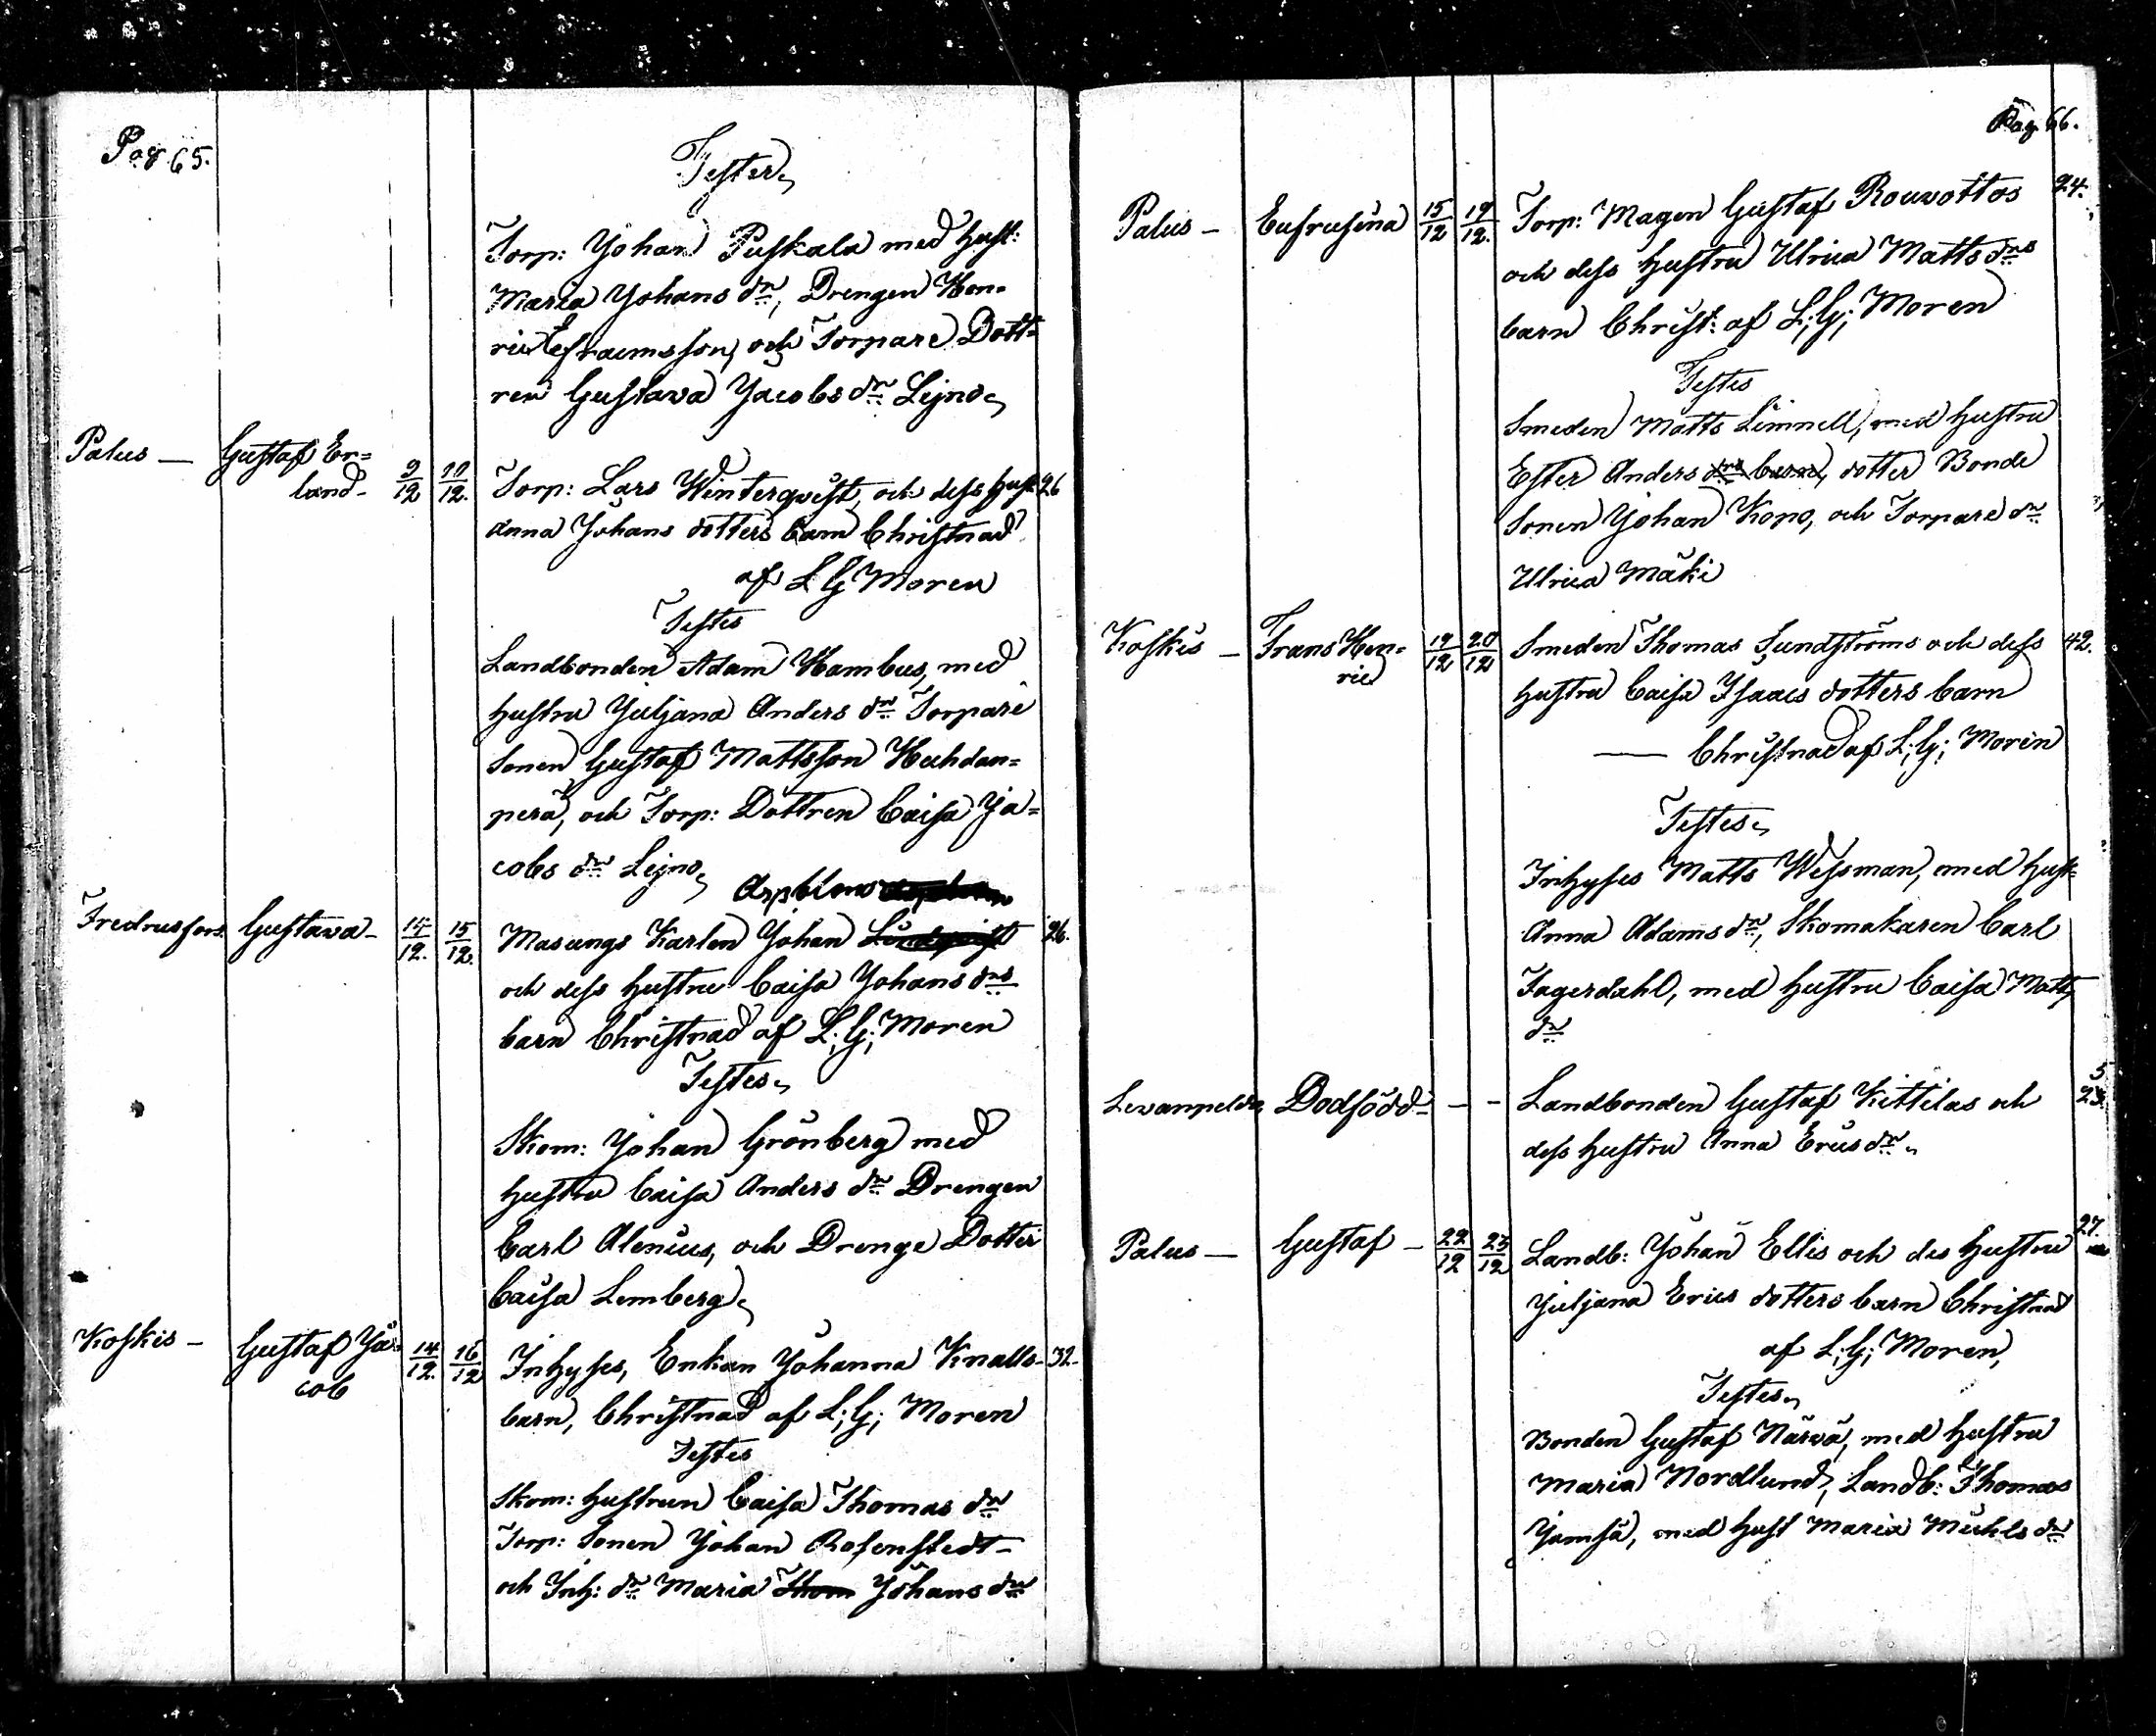 Pag 65.
Testes
Torp: Johan Puskala med hust:
Maria Johans dr, Drengen Hen=
ric Efraimsson, och Torpare Dott=
ren Gustava Jacobs dr Lejno
Palus — Gustaf Er= 9/12 10/12. Torp: Lars Winterqvist, och dess hust 26
land - Anna Johans dotters barn Christnad
af L G Moren
Testes
Landbonden Adam Hambus, med
hustru Juljana Anders dr Torpare
Sonen Gustaf Mattsson Huhdan=
perä, och Torp: Dottren Caisa Ja=
cobs dr Lejno
Asplelms
Fredrusfors. Gustava - 14/12. 15/12. Masungs Karlen Johan Lindqvist 26.
och dess hustru Caisa Johans drs
barn Christnad af L; G; Moren
Testes
Skom: Johan Grönberg med
hustru Caisa Anders dr Drengen
Carl Alenius, och Drenge Dotter
Caisa Lemberg
Koskis - Gustaf Ja= 14/12. 16/12 Inhyses, Enkan Johanna Knalls- 32-
cob barn, Christnad af L; G; Moren
Testes
Skom: hustrun Caisa Thomas dr
Torp: Sonen Johan Rosenstedt -
och Inh: dr Maria Thom Johans dr
Pag. 66.
Palus - Eufrusina 15/12 19/12. Torp: Magen Gustaf Rouvottos 24.
och dess hustru Ulrica Matts drs
barn Christ: af L; G; Moren
Testes
Smeden Matts Limnell, med hustru
Ester Anders drs barn, dotter Bonde
Sonen Johan Kopo, och Torpare dr
Ulrica Mäki
Koskis - Frans Hen= 19/12 20/12 Smeden Thomas Sundströms och dess 42.
ric hustru Caisa Isaacs dotters barn
— Christnad af L; G; Moren
Testes
Inhyses Matts Wessman, med hust=
Anna Adams dr, Skomakaren Carl
Fagerdahl, med hustru Caisa Matts
dr
Levanpelda Dodfödd - - - Landbonden Gustaf Kittilas och 5 23.
dess hustru Anna Erics dr
Palus — Gustaf - 22/12 23/12 Landb: Johan Ellis och des hustru 27.
Juljana Erics dotters barn Christnad
af L; G; Moren,
Testes
Bonden Gustaf Närvä, med hustru
Maria Nordlund, Landb: Thomas
Jämsä, med hust Maria Michls dr